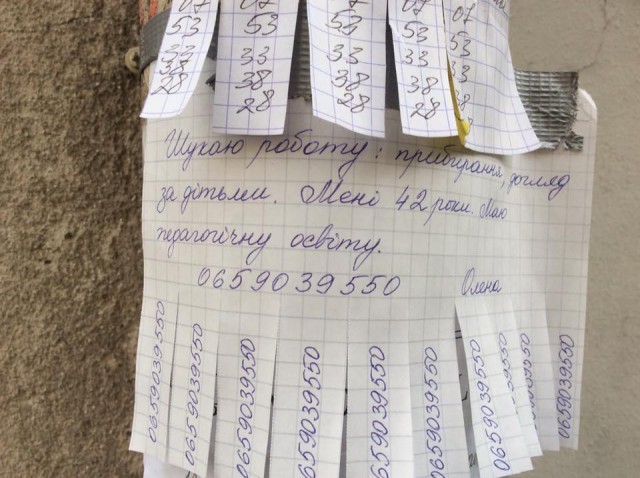 07
53
33
38
28
07
53
33
38
28
07
53
33
38
28
07
53
33
38
28
07
53
33
38
Шукаю роботу: прибирання, догляд
за дітьми. Мені 42 роки. Маю
педагогічну освіту.
0659039550 Олена
0659039550
0659039550
0659039550
0659039550
0659039550
0659039550
0659039550
0659039550
0659039550
0659039550